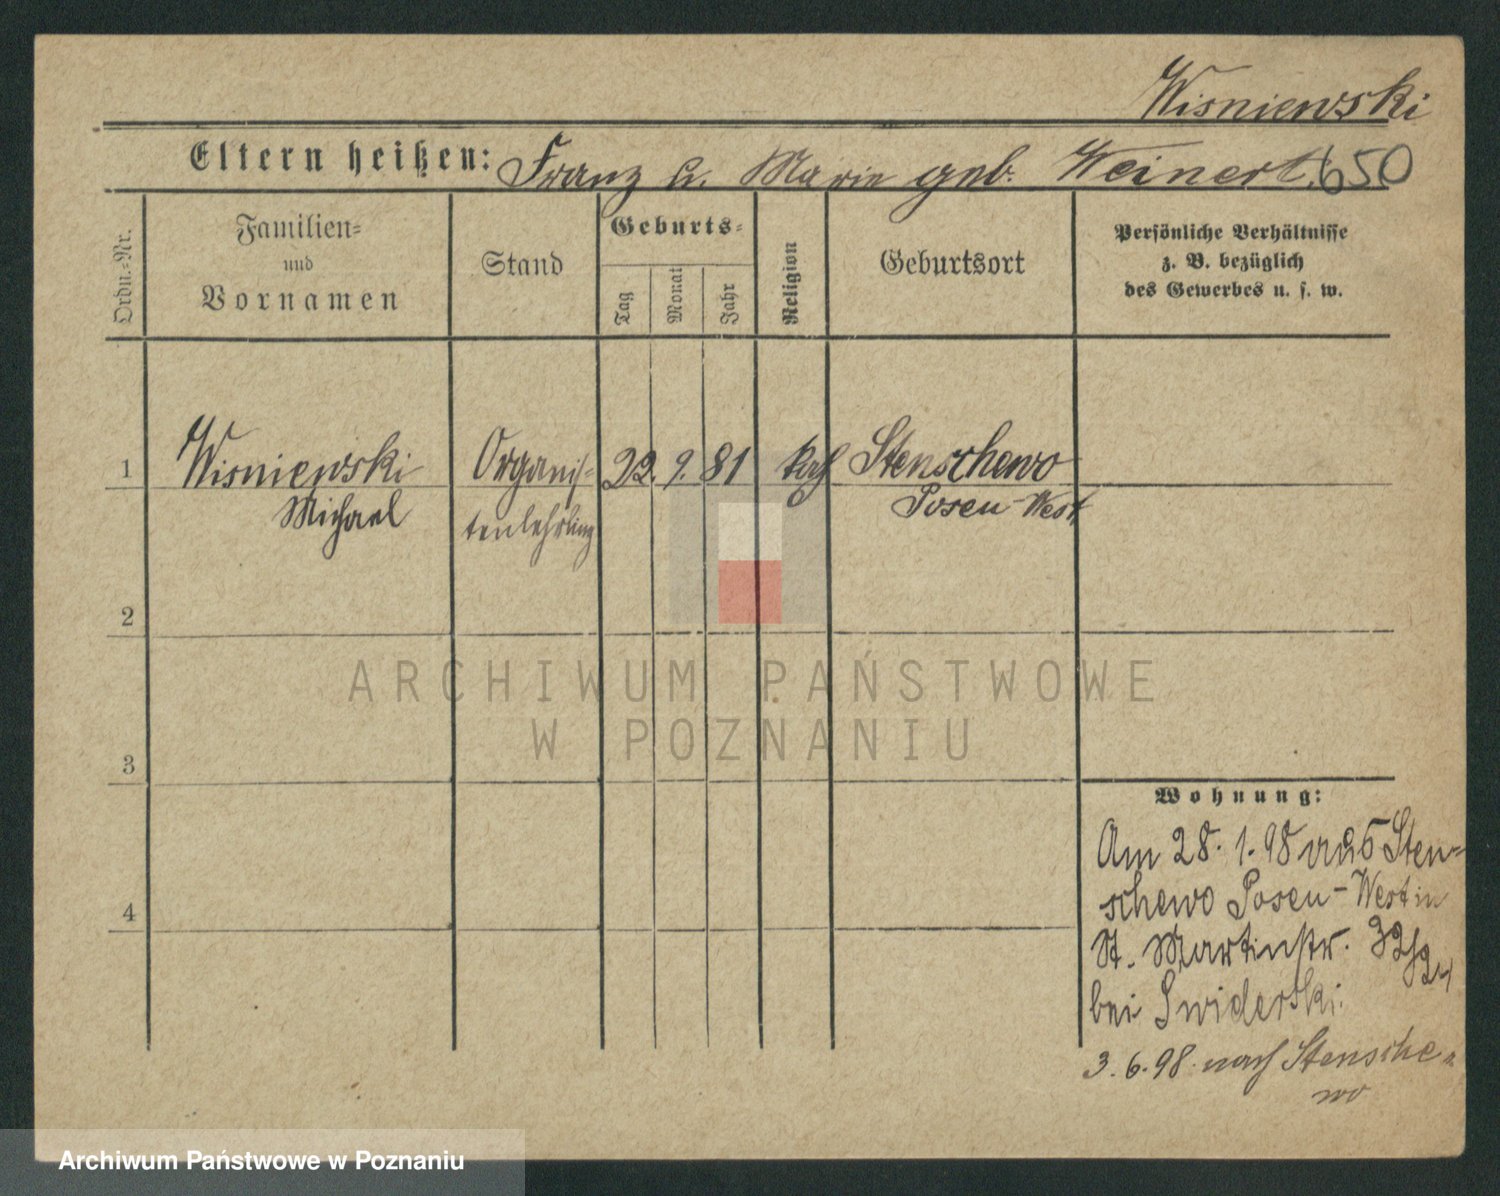 Wisniewski
Eltern heißen: Franz u. Marie geb. Weinert. 650
Ordn.-Nr.
Familien-
und
Vornamen
Stand
Geburts-
Tag
Monat
Jahr
Religion
Geburtsort
Persönliche Verhältnisse
z. B. bezüglich
des Gewerbes u. s. w.
1 Wisniewski Organis- 22. 9. 81 kath Stenschewo
Michael tenlehrling Posen-West
2
3
4
Wohnung:
Am 28. 1. 98 aus Sten-
schewo Posen-West in
St. Martinstr. 32/24
bei Swiderski.
3. 6. 98. nach Stensche-
wo
ARCHIWUM PAŃSTWOWE
W POZNANIU
Archiwum Państwowe w Poznaniu